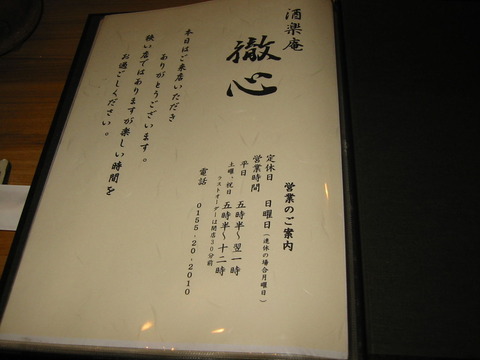 酒楽庵
徹心
本日はご来店いただき
ありがとうございます。
狭い店ではありますが楽しい時間を
お過ごしください。
営業のご案内
定休日 日曜日(連休の場合月曜日)
営業時間
平日 五時半〜翌一時
土曜、祝日 五時半〜十二時
ラストオーダーは閉店30分前
電話 0155-20-2010